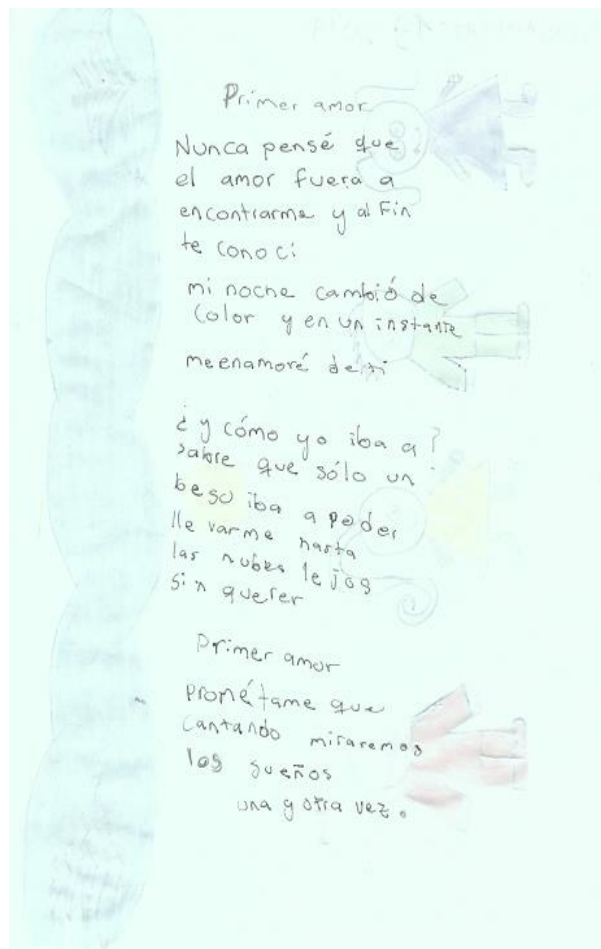 Primer amor
Nunca pensé que
el amor fuera a
encontrarme y al Fin
te conocí
mi noche cambió de
color y en un instante
me enamoré de ti
¿y cómo yo iba a?
sabre que sólo un
beso iba a poder
lle varme hasta
las nubes lejos
sin querer
Primer amor
Prométame que
cantando miraremos
los sueños
una y otra vez.